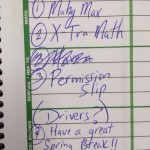 ① Moby Max
② X-Tra Math
③ Permission
Slip
(Drivers?)
Have a great
Spring Break!!